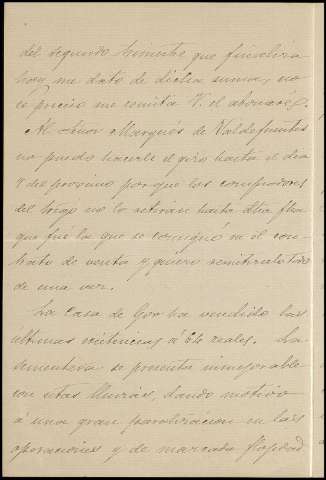 del segundo trimestre que finaliza
hoy me dato de dicha suma, no
es preciso me remita V. el abonaré.
Al Señor Marqués de Valdefuentes
no puedo hacerle el giro hasta el dia
del proximo porque los compradores
del trigo no lo retiran hasta dha fha
que fué la que se consignó en el con-
trato de venta y quiero remitirselo todo
de una vez.
La Casa de Gor ha vendido las
últimas existencias á 64 reales. La
sementera se presenta inmejorable
con estas lluvias, dando motivo
á una gran paralización en las
operaciones y de marcada flojedad